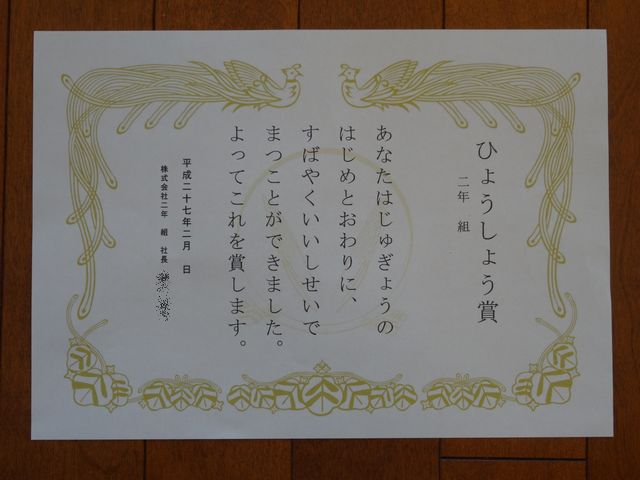 ひょうしょう賞
二年　組
あなたはじゅぎょうの
はじめとおわりに、
すばやくいいしせいで
まつことができました。
よってこれを賞します。
平成二十七年二月　日
株式会社二年　組　社長